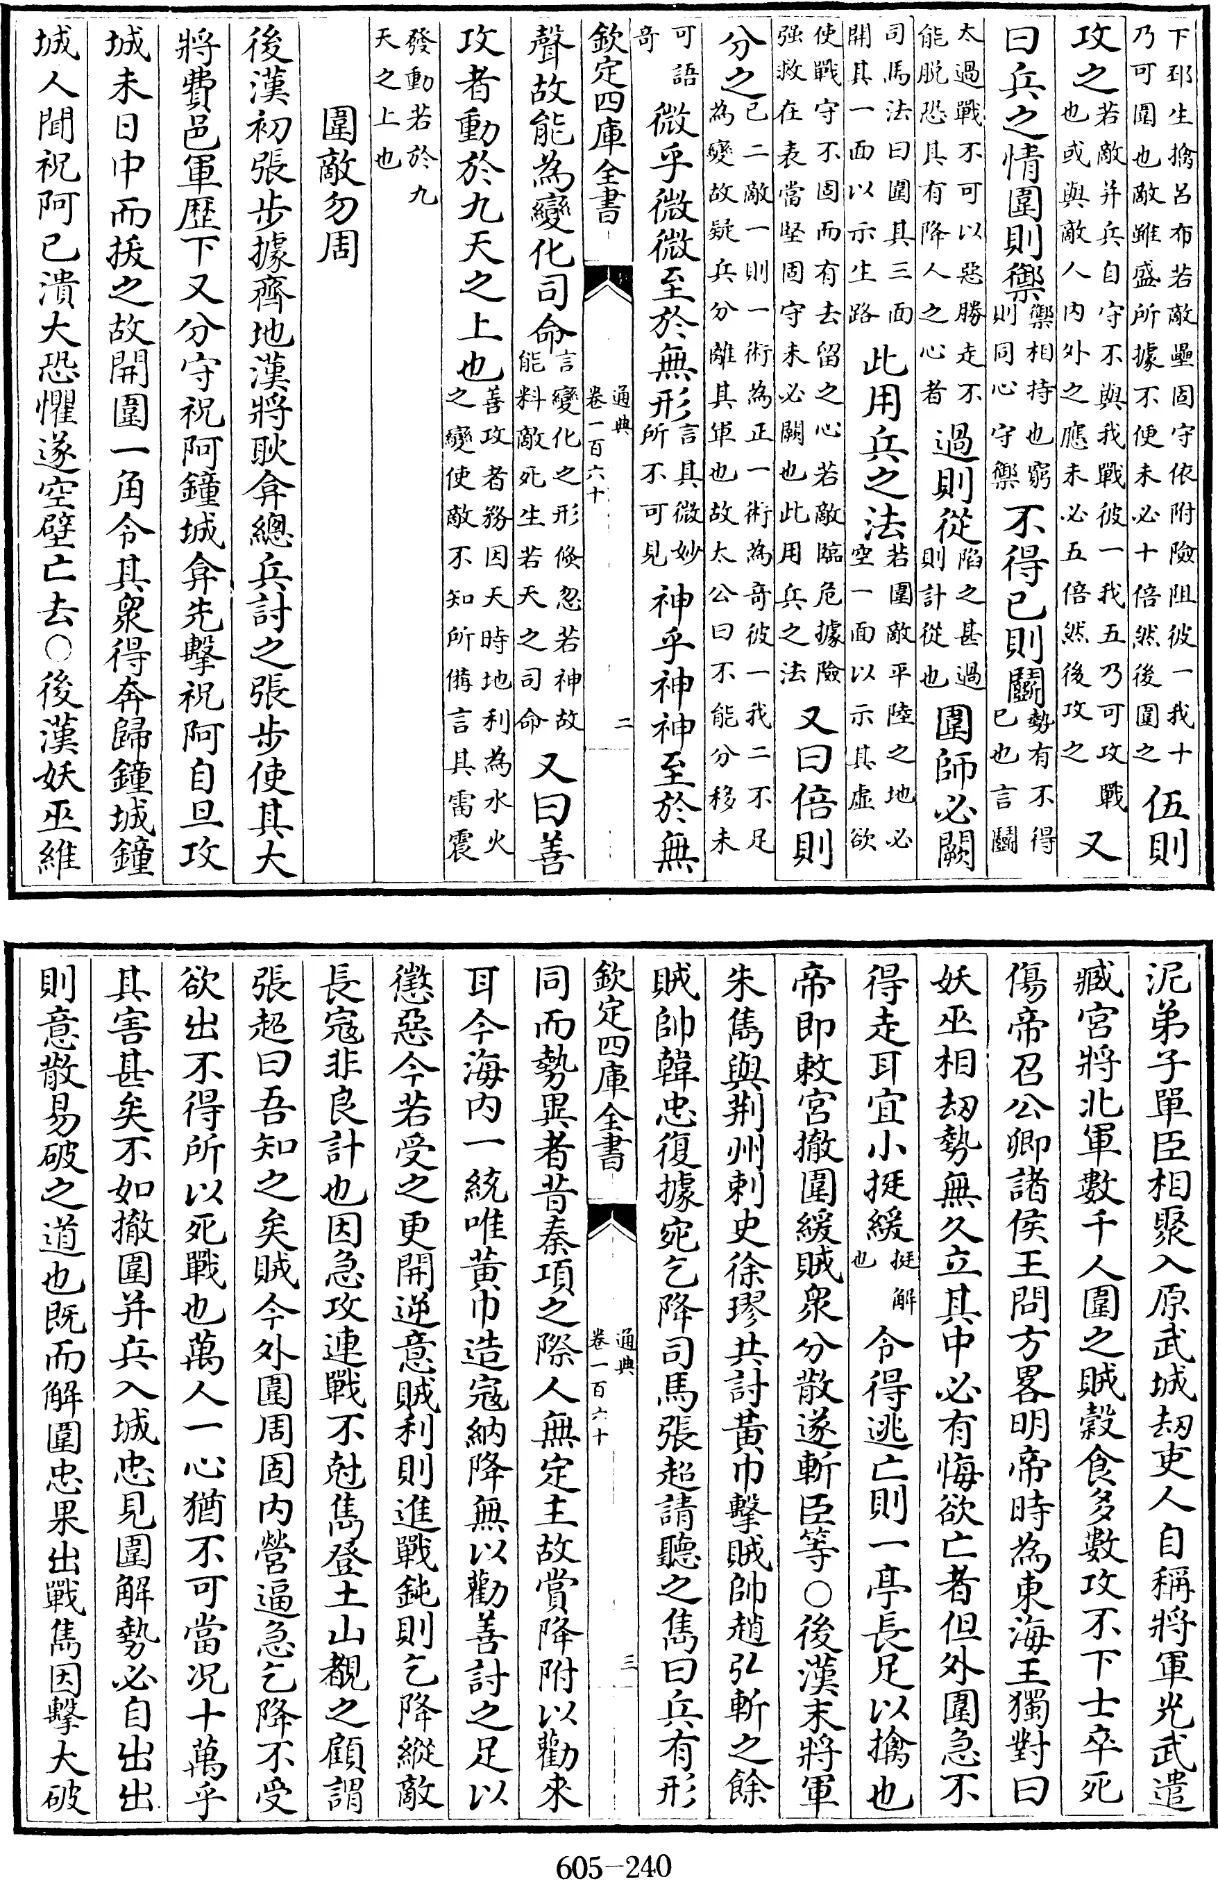 下邳生擒呂布若敵壘固守依附險阻彼一我十乃可圍也敵雖盛所據不便未必十倍然後圍之伍則
攻之若敵并兵自守不與我戰彼一我五乃可攻戰也或與敵人内外之應未必五倍然後攻之又
曰兵之情圍則禦禦相持也窮則同心守禦不得已則鬭勢有不得已也言鬭
太過戰不可以惡勝走不能脱恐其有降人之心者過則從陷之甚過則計從也圍師必闕
司馬法曰圍其三面開其一面以示生路此用兵之法若圍敵平陸之地必空一面以示其虛欲
使戰守不固而有去留之心若敵臨危據險强救在表當堅固守未必闕也此用兵之法又曰倍則
分之已二敵一則一術為正一術為奇彼一我二不足為變故疑兵分離其軍也故太公曰不能分移未
可語奇微乎微微至於無形言其微妙所不可見神乎神神至於無
欽定四庫全書 通典卷一百六十 二
聲故能為變化司命言變化之形倏忽若神故能料敵死生若天之司命又曰善
攻者動於九天之上也善攻者務因天時地利為水火之變使敵不知所備言其雷震
發動若於九天之上也
圍敵勿周
後漢初張步據齊地漢將耿弇總兵討之張步使其大
將費邑軍歷下又分守祝阿鐘城弇先擊祝阿自旦攻
城未日中而拔之故開圍一角令其衆得奔歸鐘城鐘
城人聞祝阿已潰大恐懼遂空壁亡去○後漢妖巫維
泥弟子單臣相聚入原武城刼吏人自稱將軍光武遣
臧宮將北軍數千人圍之賊穀食多數攻不下士卒死
傷帝召公卿諸侯王問方畧明帝時為東海王獨對曰
妖巫相刼勢無久立其中必有悔欲亡者但外圍急不
得走耳宜小挺緩挺解也令得逃亡則一亭長足以擒也
帝即敕宮撤圍緩賊衆分散遂斬臣等○後漢末將軍
朱雋與荆州刺史徐璆共討黄巾擊賊帥趙弘斬之餘
賊帥韓忠復據宛乞降司馬張超請聽之雋曰兵有形
欽定四庫全書 通典卷一百六十 三
同而勢異者昔秦項之際人無定主故賞降附以勸來
耳今海内一統唯黄巾造寇納降無以勸善討之足以
懲惡今若受之更開逆意賊利則進戰鈍則乞降縱敵
長寇非良計也因急攻連戰不尅雋登土山覩之顧謂
張超曰吾知之矣賊今外圍周固内營逼急乞降不受
欲出不得所以死戰也萬人一心猶不可當况十萬乎
其害甚矣不如撤圍并兵入城忠見圍解勢必自出出
則意散易破之道也既而解圍忠果出戰雋因擊大破
605-240